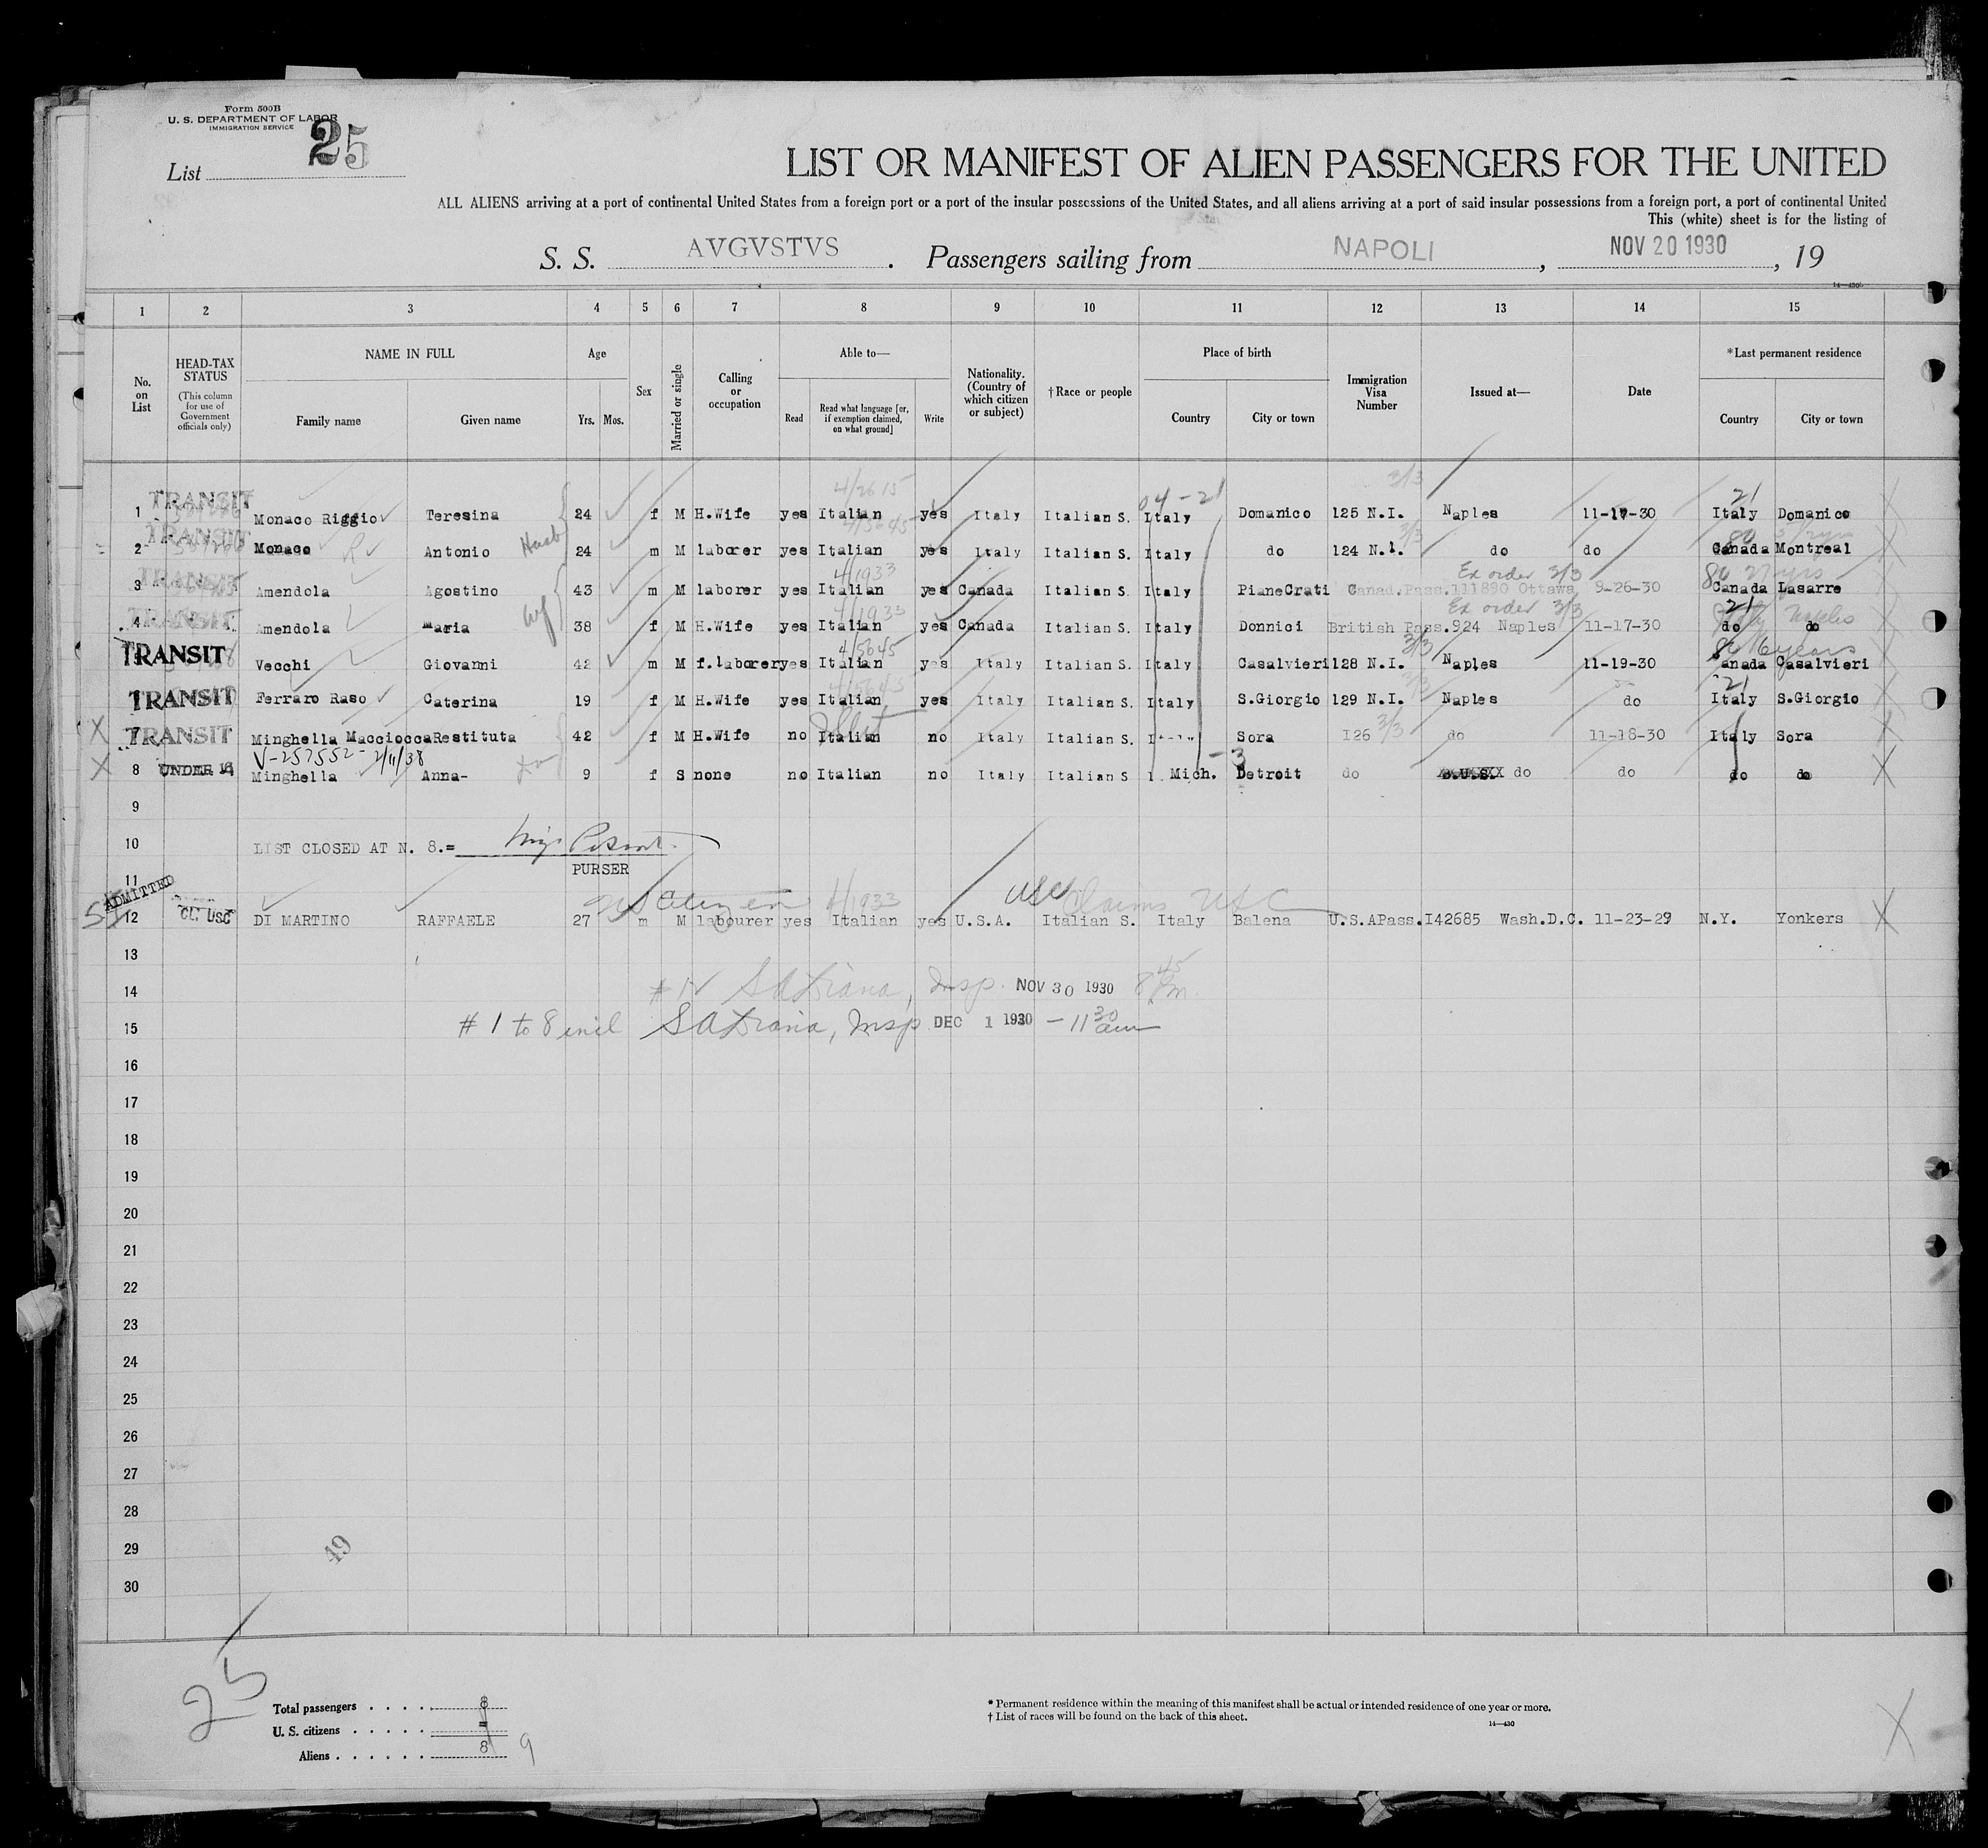 Form 500B
U. S. DEPARTMENT OF LABOR
IMMIGRATION SERVICE
List 25
LIST OR MANIFEST OF ALIEN PASSENGERS FOR THE UNITED
ALL ALIENS arriving at a port of continental United States from a foreign port or a port of the insular possessions of the United States, and all aliens arriving at a port of said insular possessions from a foreign port, a port of continental United
This (white) sheet is for the listing of
S. S. AVGVSTVS . Passengers sailing from NAPOLI , NOV 20 1930 , 19
14—430
1 2 3 4 5 6 7 8 9 10 11 12 13 14 15
No. on List
HEAD-TAX STATUS (This column for use of Government officials only)
NAME IN FULL
Family name Given name
Age
Yrs. Mos.
Sex
Married or single
Calling or occupation
Able to—
Read Read what language [or, if exemption claimed, on what ground] Write
Nationality. (Country of which citizen or subject)
† Race or people
Place of birth
Country City or town
Immigration Visa Number
Issued at—
Date
*Last permanent residence
Country City or town
4/2615 3/3
04-21 21
1 TRANSIT Monaco Riggio Teresina 24 f M H.Wife yes Italian yes Italy Italian S. Italy Domanico 125 N.I. Naples 11-17-30 Italy Domanico
2 TRANSIT Monaco R Antonio Husb 24 m M laborer yes Italian yes Italy Italian S. Italy do 124 N.I. do do Canada Montreal
4/1933 Ex order 3/3 80
3 TRANSIT Amendola Agostino 43 m M laborer yes Italian yes Canada Italian S. Italy PianeCrati Canad.Pass.111890 Ottawa 9-26-30 Canada Lasarre
4/1933 Ex order 3/3 21
4 TRANSIT Amendola Maria wf 38 f M H.Wife yes Italian yes Canada Italian S. Italy Donnici British Pass.924 Naples 11-17-30 do do
4/5645 3/3 80 6 years
TRANSIT Vecchi Giovanni 42 m M f.laborer yes Italian yes Italy Italian S. Italy Casalvieri 128 N.I. Naples 11-19-30 Canada Casalvieri
4/5645 3/3 21
TRANSIT Ferraro Raso Caterina 19 f M H.Wife yes Italian yes Italy Italian S. Italy S.Giorgio 129 N.I. Naples do Italy S.Giorgio
X 7 TRANSIT Minghella Macciocca Restituta 42 f M H.Wife no Italian no Italy Italian S. Sora I26 3/3 do 11-18-30 Italy Sora
V-257552- 2/11/38
X 8 UNDER 16 Minghella Anna- 9 f S none no Italian no Italy Italian S Mich. Detroit do do do do do
9
10 LIST CLOSED AT N. 8.=
PURSER
11
ADMITTED US Citizen 4/1933 USC Claims USC
12 CL. USC DI MARTINO RAFFAELE 27 m M labourer yes Italian yes U.S.A. Italian S. Italy Balena U.S.APass.I42685 Wash.D.C. 11-23-29 N.Y. Yonkers
13
14 Insp. NOV 30 1930 8 45 Pm.
15 # 1 to 8 incl Insp DEC 1 1930 - 11 30 am
16
17
18
19
20
21
22
23
24
25
26
27
28
29
30
49
25
Total passengers . . . . 8
U. S. citizens . . . . . =
Aliens . . . . . . 8 9
* Permanent residence within the meaning of this manifest shall be actual or intended residence of one year or more.
† List of races will be found on the back of this sheet.
14—430